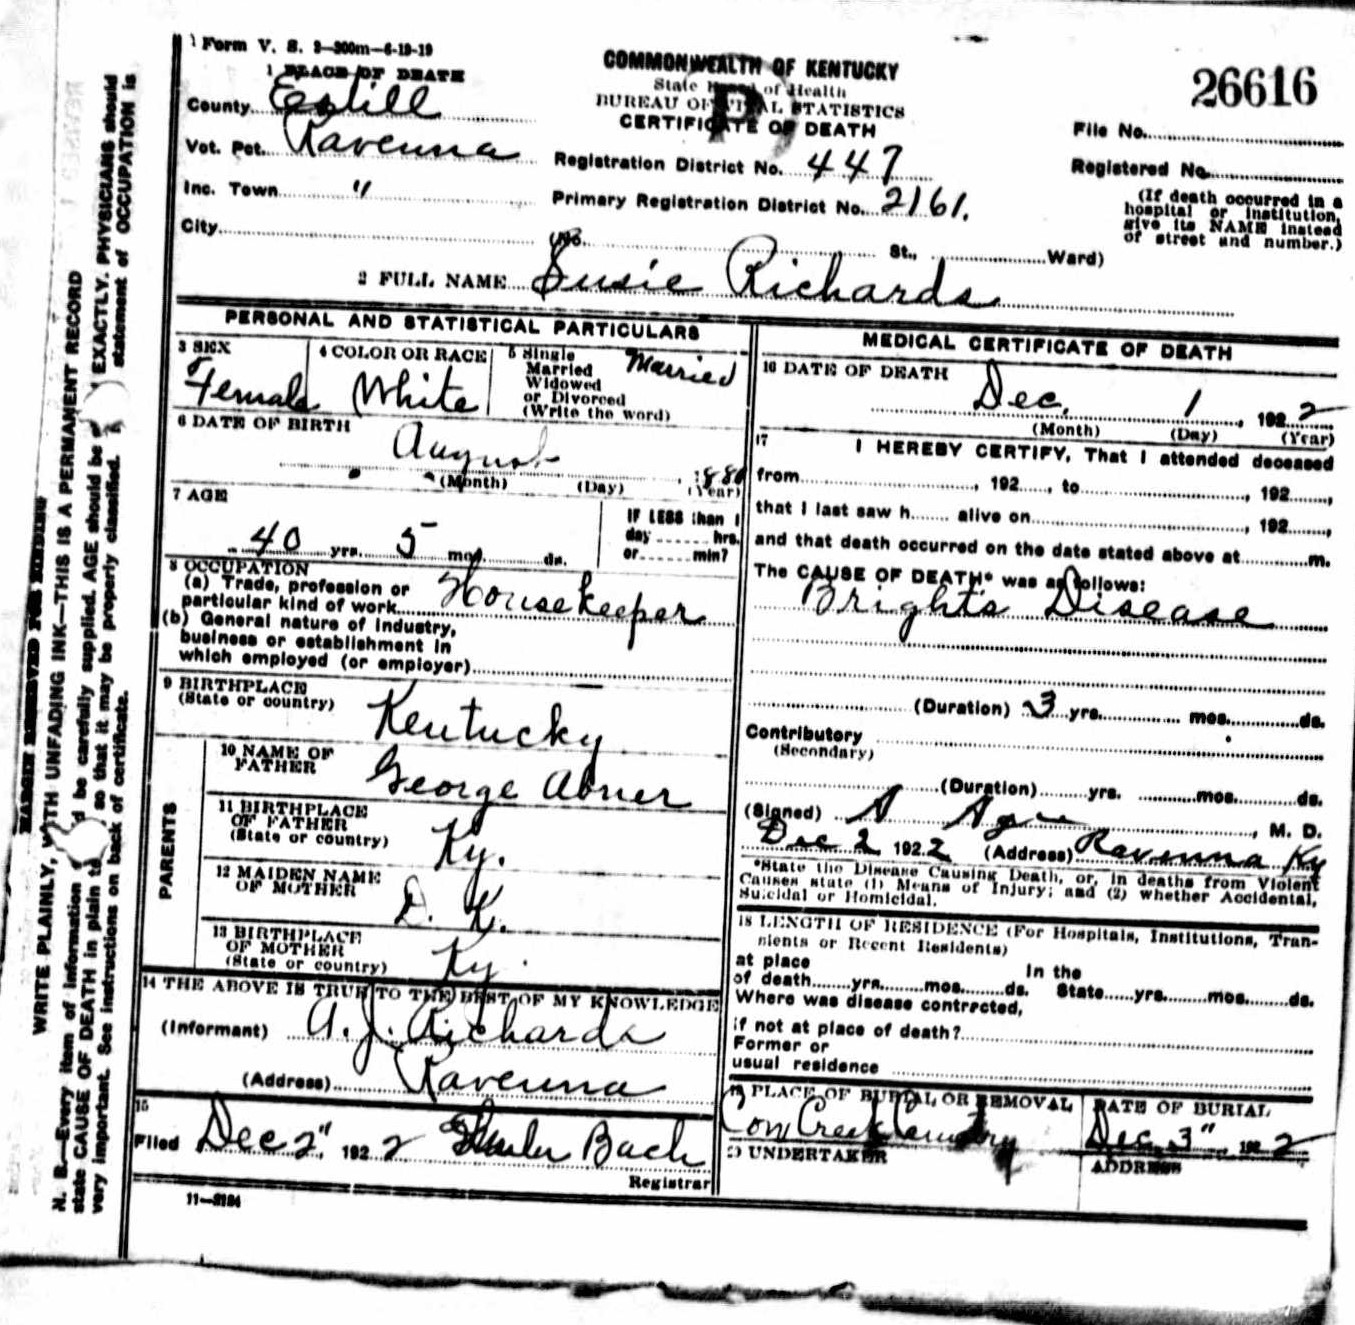 Form V. S. 3—300m—6-19-19
1 PLACE OF DEATH
County Estill
Vot. Pct. Ravenna
Inc. Town "
City
COMMONWEALTH OF KENTUCKY
State Board of Health
BUREAU OF VITAL STATISTICS
CERTIFICATE OF DEATH
Registration District No. 447
Primary Registration District No. 2161.
26616
File No.
Registered No.
(If death occurred in a
hospital or institution,
give its NAME instead
of street and number.)
(No. St., Ward)
2 FULL NAME Susie Richards
PERSONAL AND STATISTICAL PARTICULARS
3 SEX
Female
4 COLOR OR RACE
White
5 Single
Married
Widowed
or Divorced
(Write the word)
Married
6 DATE OF BIRTH
August 1880
(Month) (Day) (Year)
7 AGE
40 yrs. 5 mos. ds.
IF LESS than 1
day hrs.
or min?
8 OCCUPATION
(a) Trade, profession or
particular kind of work Housekeeper
(b) General nature of industry,
business or establishment in
which employed (or employer)
9 BIRTHPLACE
(State or country)
Kentucky
PARENTS
10 NAME OF
FATHER
George Abner
11 BIRTHPLACE
OF FATHER
(State or country)
Ky.
12 MAIDEN NAME
OF MOTHER
D. K.
13 BIRTHPLACE
OF MOTHER
(State or country)
Ky.
14 THE ABOVE IS TRUE TO THE BEST OF MY KNOWLEDGE
(Informant) A. J. Richards
(Address) Ravenna
15
Filed Dec 2", 1922 Bach
Registrar
11—3184
MEDICAL CERTIFICATE OF DEATH
16 DATE OF DEATH
Dec. 1, 1922
(Month) (Day) (Year)
17
I HEREBY CERTIFY, That I attended deceased
from , 192 , to , 192 ,
that I last saw h alive on , 192 ,
and that death occurred on the date stated above at m.
The CAUSE OF DEATH* was as follows:
Brights Disease
(Duration) 3 yrs. mos. ds.
Contributory
(Secondary)
(Duration) yrs. mos. ds.
(Signed) A , M. D.
Dec 2 1922 (Address) Ravenna Ky
*State the Disease Causing Death, or, in deaths from Violent
Causes state (1) Means of Injury; and (2) whether Accidental,
Suicidal or Homicidal.
18 LENGTH OF RESIDENCE (For Hospitals, Institutions, Tran-
sients or Recent Residents)
at place
of death yrs. mos. ds.
In the
State yrs. mos. ds.
Where was disease contracted,
if not at place of death?
Former or
usual residence
19 PLACE OF BURIAL OR REMOVAL
Cow Creek Cemetery
DATE OF BURIAL
Dec 3", 1922
20 UNDERTAKER
ADDRESS
MARGIN RESERVED FOR BINDING
WRITE PLAINLY, WITH UNFADING INK—THIS IS A PERMANENT RECORD
N. B.—Every item of information should be carefully supplied. AGE should be stated EXACTLY. PHYSICIANS should
state CAUSE OF DEATH in plain terms, so that it may be properly classified. Exact statement of OCCUPATION is
very important. See instructions on back of certificate.